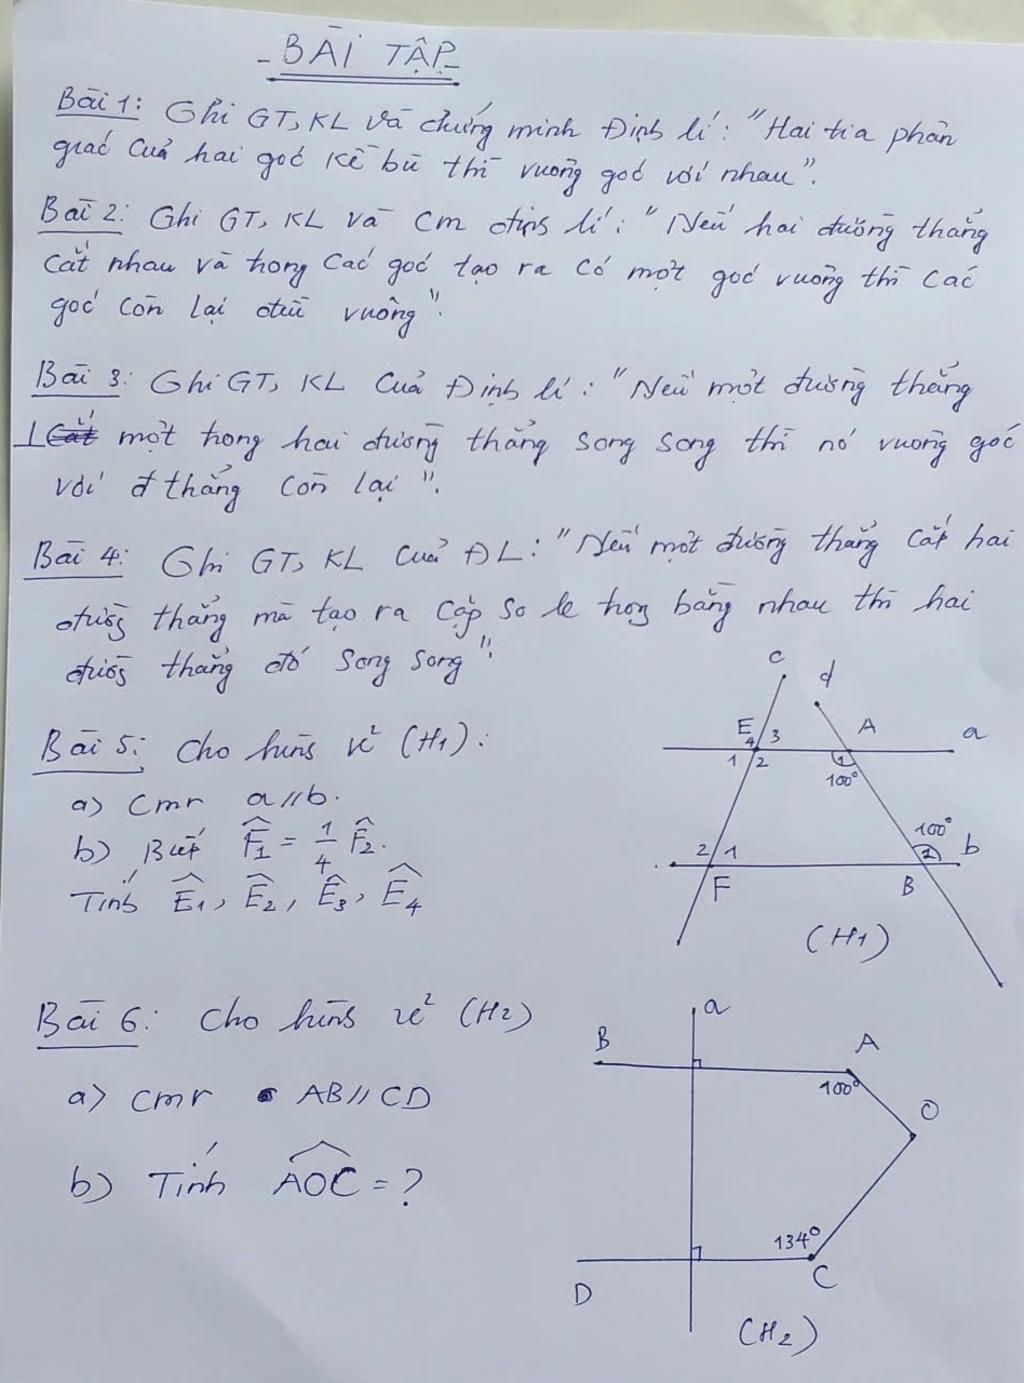 - BÀI TẬP -
Bài 1: Ghi GT, KL và chứng minh Định lí: "Hai tia phân
giác của hai góc kề bù thì vuông góc với nhau".
Bài 2: Ghi GT, KL và cm định lí: "Nếu hai đường thẳng
cắt nhau và trong các góc tạo ra có một góc vuông thì các
góc còn lại đều vuông".
Bài 3: Ghi GT, KL của Định lí: "Nếu một đường thẳng
⊥ một trong hai đường thẳng song song thì nó vuông góc
với đ thẳng còn lại".
Bài 4: Ghi GT, KL của ĐL: "Nếu một đường thẳng cắt hai
đường thẳng mà tạo ra cặp so le trong bằng nhau thì hai
đường thẳng đó song song".
c d
E 4 3 A a
1 2 1
100°
Bài 5: Cho hình vẽ (H1):
a) Cmr a//b.
b) Biết F̂1 = 1/4 F̂2.
Tính Ê1, Ê2, Ê3, Ê4
100°
2 1 1 b
F B
(H1)
Bài 6: Cho hình vẽ (H2)
a) cmr AB//CD
b) Tính AOC = ?
a
B A
100°
O
134°
D C
(H2)